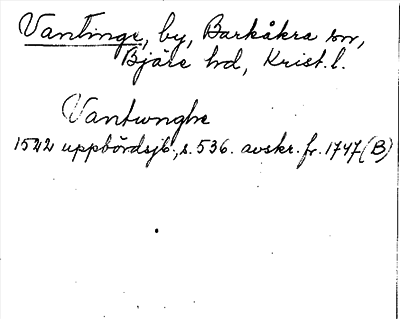 Vantinge, by, Barkåkra sn,
Bjäre hd, Krist. l.
Vantwnghe
1522 uppbördsjb., s. 536. avskr. fr. 1747 (B)